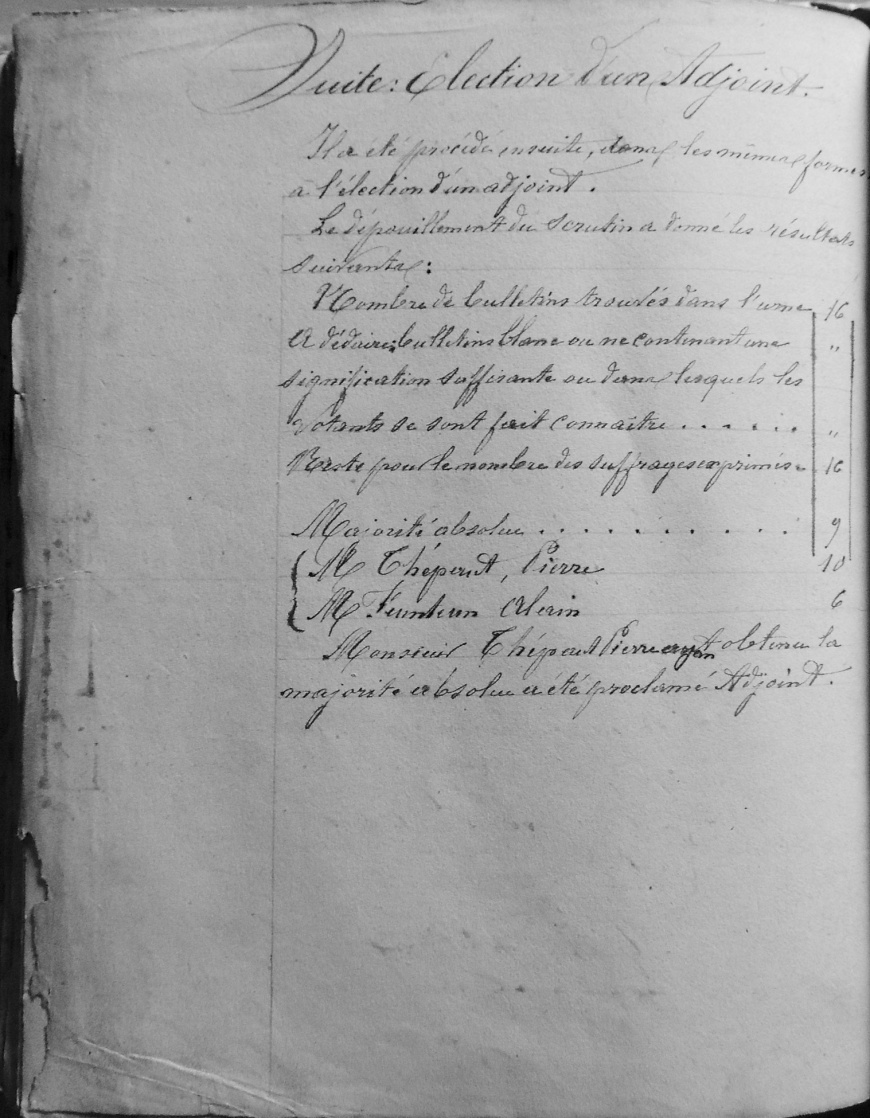 Suite: Election d'un Adjoint.
Il a été procédé ensuite, dans les mêmes formes
a l'élection d'un adjoint.
Le dépouillement du scrutin a donné les résultats
suivants :
Nombre de bulletins trouvés dans l'urne 16
A déduire: bulletins blanc ou ne contenant une "
signification suffisante ou dans lesquels les
Votants se sont fait connaître . . . . . . "
Reste pour le nombre des suffrages exprimés. 16
Majorité absolue . . . . . . . . . . . 9
M Thépaut, Pierre 10
M Feunteun Alain 6
Monsieur Thépaut Pierre ayant obtenu la
majorité absolue a été proclamé Adjoint.